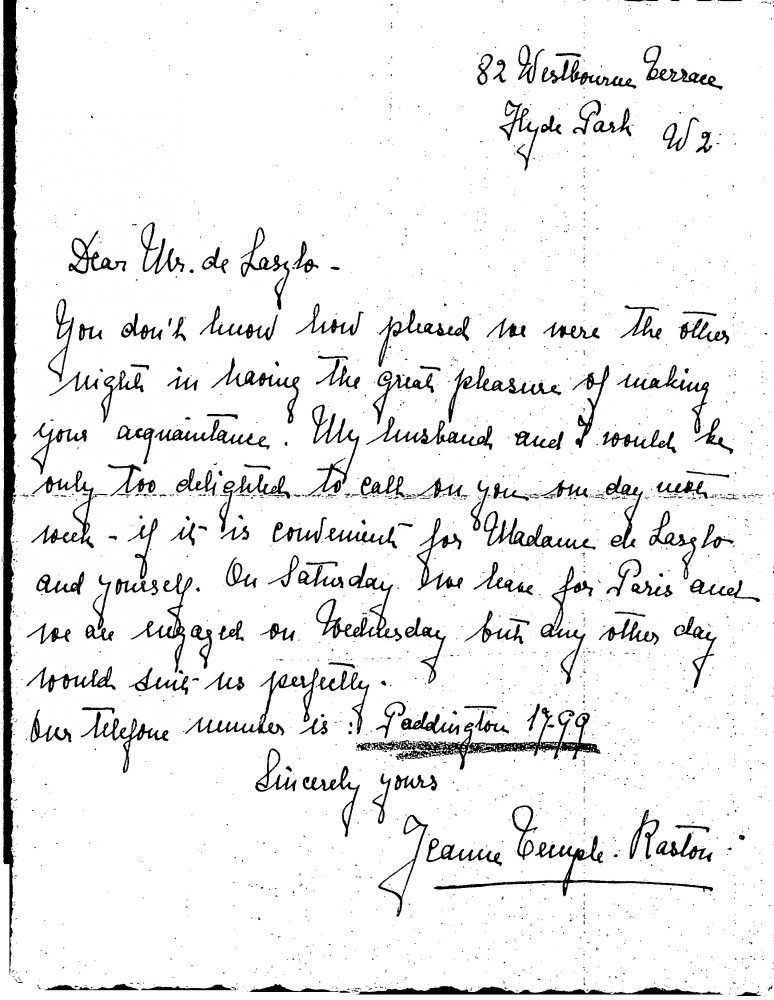 82 Westbourne Terrace
Hyde Park W2
Dear Mr. de Laszlo -
You don't know how pleased we were the other
night in having the great pleasure of making
your acquaintance. My husband and I would be
only too delighted to call on you one day next
week - if it is convenient for Madame de Laszlo
and yourself. On Saturday we leave for Paris and
we are engaged on Wednesday but any other day
would suit us perfectly.
Our telefone number is : Paddington 1799
Sincerely yours
Jeanne Temple. Raston